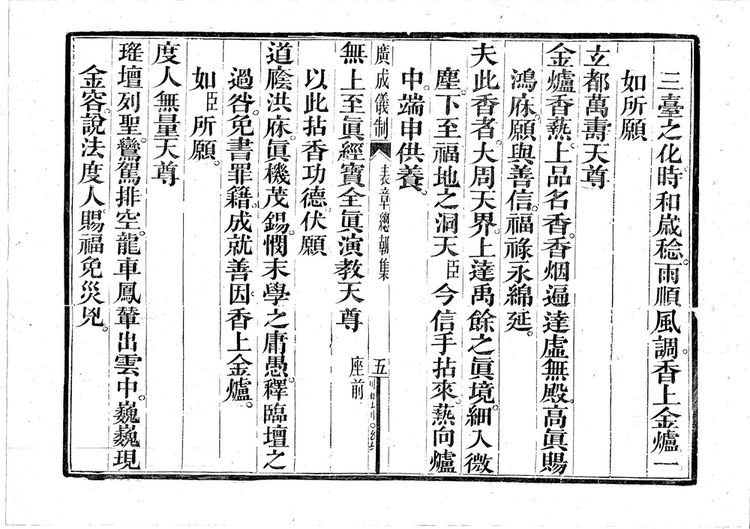 三臺之化時和歲稔。雨順風調。香上金爐一
如所願
玄都萬壽天尊
金爐香爇。上品名香。香烟遍達虛無殿高眞賜
鴻庥。願與善信。福祿永綿延。
夫此香者。大周天界。上達禹餘之眞境。細入微
塵。下至福地之洞天臣今信手拈來。爇向爐
中。端申供養。
廣成儀制 表章總朝集 五
無上至眞經寶全眞演教天尊 座前
以此拈香功德。伏願
道廕洪庥。眞機茂錫。憫末學之庸愚。釋臨壇之
過咎。免書罪籍。成就善因。香上金爐。
如臣所願。
度人無量天尊
瑤壇列聖。鸞駕排空。龍車鳳輦出雲中。巍巍現
金容。說法度人。賜福免災兇。